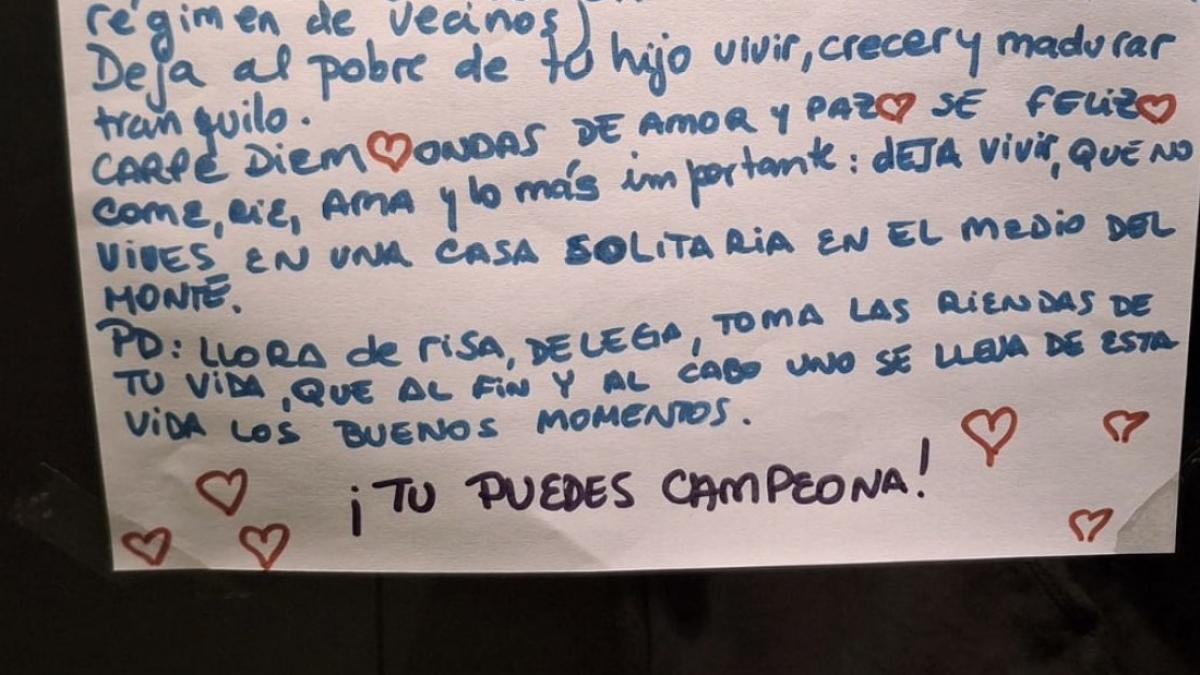 régimen de vecinos)
Deja al pobre de tu hijo vivir, crecer y madurar
tranquilo.
CARPE DIEM ONDAS DE AMOR y PAZ SE FELIZ
COME, RIE, AMA y lo más importante: DEJA VIVIR, QUE NO
VIVES EN UNA CASA SOLITARIA EN EL MEDIO DEL
MONTE.
PD: LLORA de risa, DELEGA, TOMA LAS RIENDAS DE
TU VIDA, QUE AL FIN Y AL CABO UNO SE LLEVA DE ESTA
VIDA LOS BUENOS MOMENTOS.
¡TU PUEDES CAMPEONA!